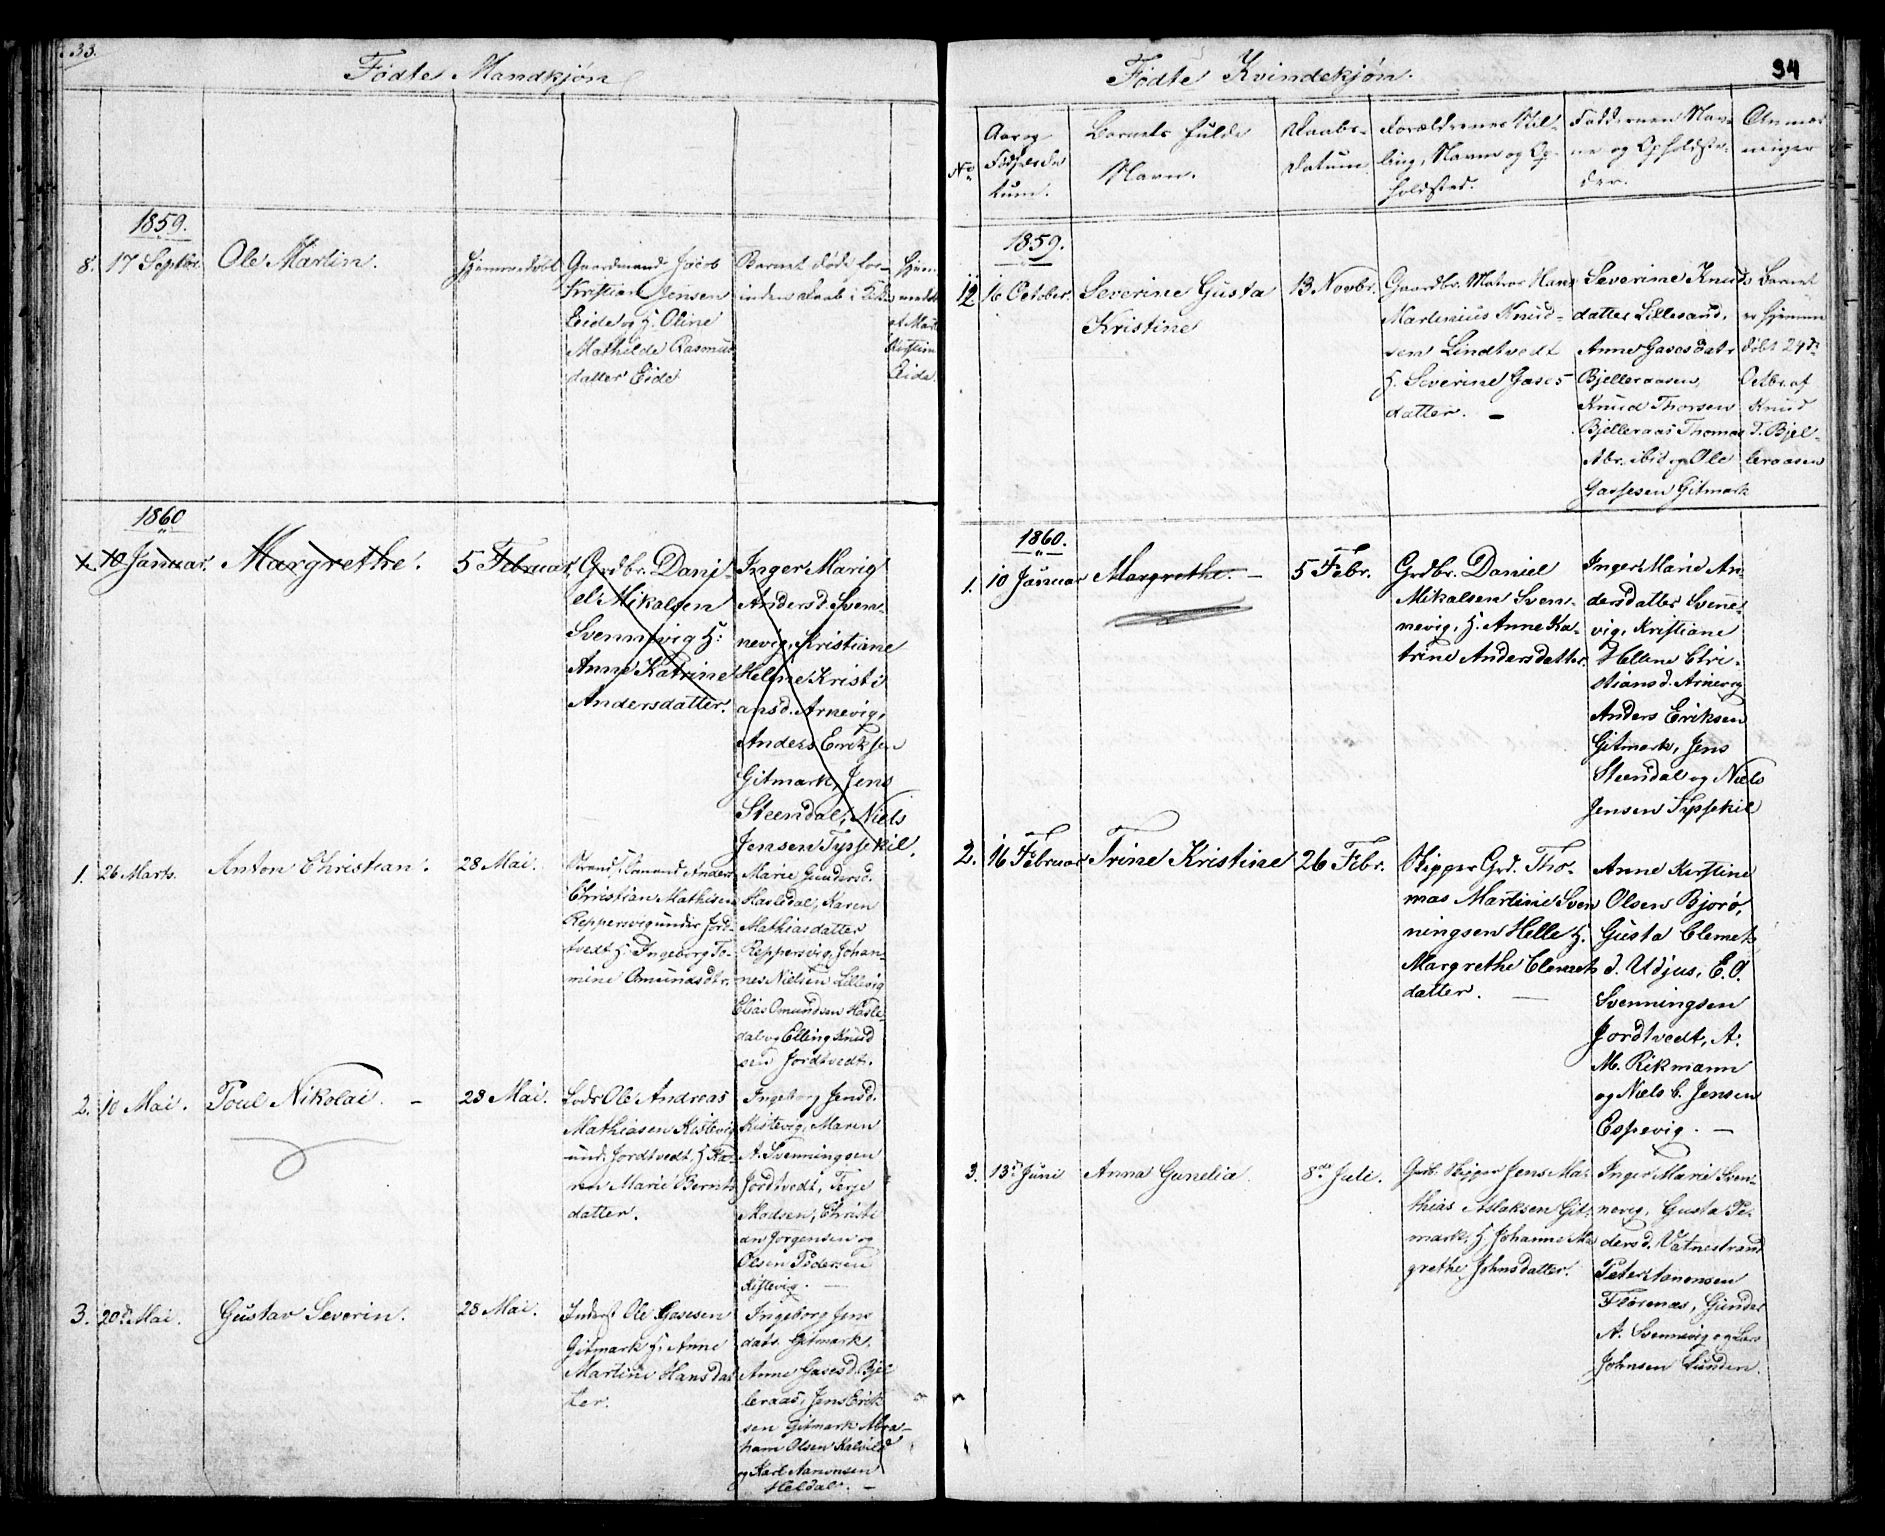 33.
Fødte Mandkjøn
1859.
8. 17 Septbr. Ole Martin.
Hjemmedøbt
Gaardmand Jacob
Kristian Jensen
Eide og H. Oline
Mathilde Rasmus
datter Eide
Barnet døde for-
inden Daab i Kirken
Hjem
medøbt
af Mari
Kirstine
Eide.
1860
1. 10 Januar. Margrethe.
5 Februar.
Grdbr. Dani-
el Mikalsen
Svennevig H:
Anne Katrine
Andersdatter.
Inger Marie
Andersd. Sven-
nevig, Kristiane
Helene Kristi
ansd. Arnevig,
Anders Eriksen
Gitmark, Jens
Steendal, Niels
Jensen Tyssekil.
1. 26 Marts. Anton Christian.
28 Mai.
Anders
Christian Mathisen
Reppersvig under Jord-
tvedt H. Ingeborg To-
mine Omundsdtr.
Marie Gundersd.
Hasledal, Karen
Mathiasdatter
Reppersvig, Johan-
nes Nielsen Lillevig
Elias Omundsen Hasle-
dal og Elling Knud
sen Jordtvedt.
2. 10 Mai. Poul Nikolai. -
28 Mai.
Lods Ole Andreas
Mathiasen Kistevig
und. Jordtvedt, H. Ka-
ren Marie Bernts
datter.
Ingeborg Jensd.
Kistevig, Maren
A. Svenningsen
Jordtvedt, Terje
Madsen, Christi
an Jørgensen og
Olsen Pedersen
Kistevig. -
3. 20de Mai. Gustav Severin.
28 Mai.
Inderst Ole Gasesen
Gitmark H. Anne
Martine Hansdat
ter.
Ingeborg Jens
datr. Gitmark.
Anne Gasesd. Bjel
leraas, Jens Erik
sen Gitmark Abra-
ham Olsen Kalvild
og Karl Aanonsen
Heldal. -
34
Fødte Kvindekjøn.
No
Aar og
Fødselsda
tum.
Barnets fulde
Navn.
Daabs-
datum.
Forældrenes Stil-
ling, Navn og Op-
holdsted.
Faddernes Nav-
ne og Opholdste-
der.
Anmær
kninger
1859.
12 16 October. Severine Gusta
Kristine
13 Novbr.
Gaardbr. Matros Hans
Martinius Knud-
sen Lindtvedt
H. Severine Gases-
datter. -
Severine Knuds
datter Lillesand,
Anne Gasesdatr
Bjelleraasen,
Knud Thorsen
Bjelleraas Thomas
Abr. ibid og Ole
Gassesen Gitmark
Barnet
er hjemme
døbt 24de
Octbr. af
Knud
T. Bjel-
leraasen
1860.
1. 10 Januar Margrethe. -
5 Febr.
Grdbr. Daniel
Mikalsen Sven-
nevig, H. Anne Ka-
trine Andersdatter.
Inger Marie An-
dersdatter Svenne-
vig, Kristiane
Hellene Chri-
stiansd. Arnevig
Anders Eriksen
Gitmark, Jens
Steendal og Niels
Jensen Tyssekil
2. 16 Februar Trine Kristine
26 Febr.
Skipper Grd. Tho-
mas Martinie Sven
ningsen Helle H.
Margrethe Clemets
datter. -
Anne Kirstine
Olsen Bjorø,
Gusta Clemets
d. Udjus, E. O.
Svenningsen
Jordtvedt, A.
M. Rikmann
og Niels C. Jensen
Espevig. -
3. 13de Juni Anna Gunelia.
8de Juli.
Grdb. Skipper Jens Ma-
thias Aslaksen Git-
mark, H. Johanne Ma
grethe Johnsdatter.
Inger Marie Sven-
nevig, Gusta Pe-
dersd. Vatnestrand
Peter Aanonsen
Florenæs, Gunder
A. Svennevig og Lars
Johnsen Lunden.